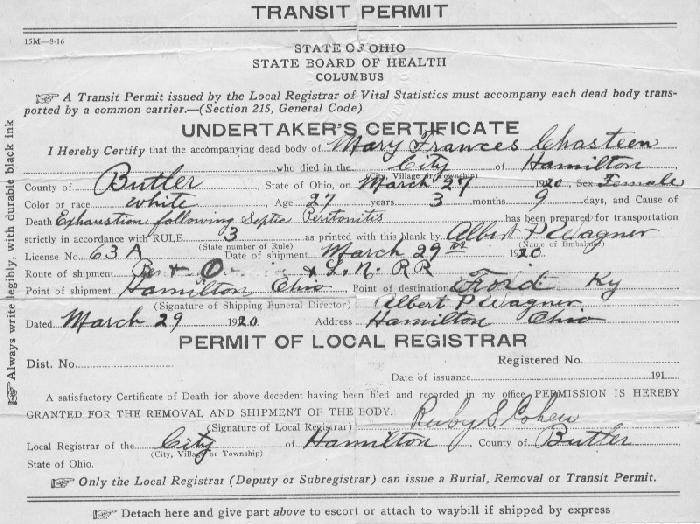 TRANSIT PERMIT
15M—8-16
STATE OF OHIO
STATE BOARD OF HEALTH
COLUMBUS
A Transit Permit issued by the Local Registrar of Vital Statistics must accompany each dead body trans-
ported by a common carrier.—(Section 215, General Code)
UNDERTAKER'S CERTIFICATE
I Hereby Certify that the accompanying dead body of Mary Frances Chasteen
who died in the City of Hamilton
(Village or Township)
County of Butler State of Ohio, on March 27 1920. Sex Female
Color or race white Age 27 years 3 months 9 days, and Cause of
Death Exhaustion following Septic Peritonitis has been prepared for transportation
strictly in accordance with RULE 3 as printed with this blank by Albert P Wagner
(State number of Rule) (Name of Embalmer)
License No. 63 A Date of shipment March 29 1920.
Route of shipment & L. N. RR
Point of shipment Hamilton Ohio Point of destination Ford Ky
(Signature of Shipping Funeral Director) Albert P Wagner
Dated March 29 1920 Address Hamilton Ohio
PERMIT OF LOCAL REGISTRAR
Dist. No. Registered No.
Date of issuance 191
A satisfactory Certificate of Death for above decedent having been filed and recorded in my office, PERMISSION IS HEREBY
GRANTED FOR THE REMOVAL AND SHIPMENT OF THE BODY.
(Signature of Local Registrar) Ruby S Cohen
Local Registrar of the City of Hamilton County of Butler
(City, Village or Township)
State of Ohio.
Only the Local Registrar (Deputy or Subregistrar) can issue a Burial, Removal or Transit Permit.
Detach here and give part above to escort or attach to waybill if shipped by express
Always write legibly, with durable black ink